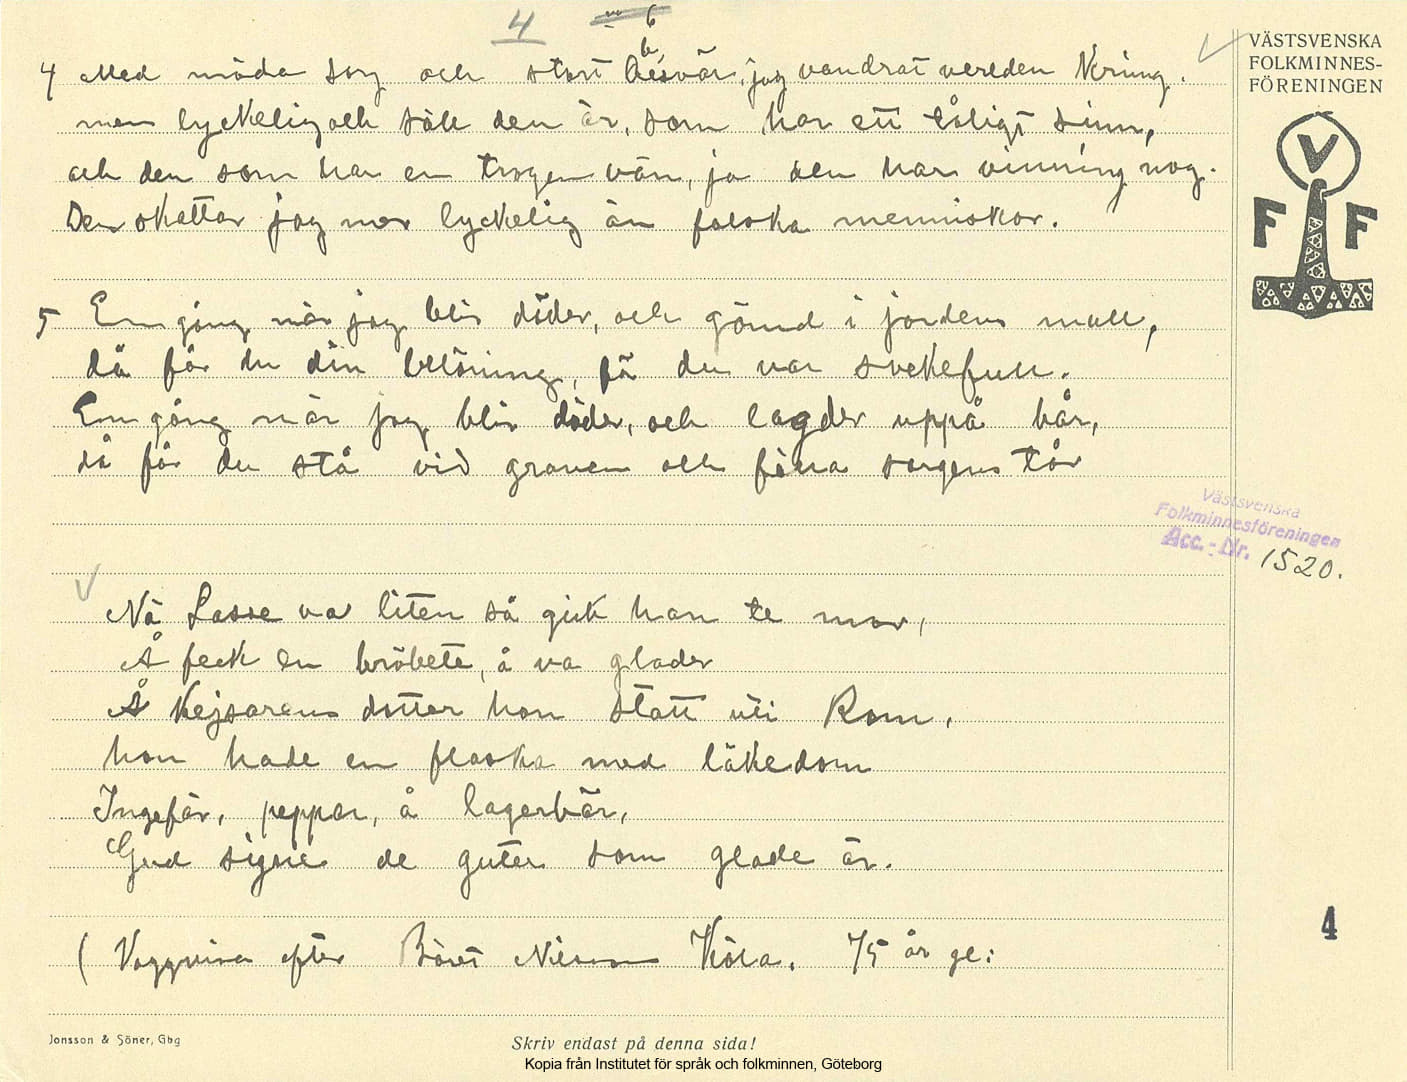 4
6
4 Med möda sorg och stort besvär, jag vandrat verlden kring.
men lyckelig och säll den är, som har ett tåligt sinn,
och den som har en trogen vän, ja den har vinning nog.
Den skattar jag mer lyckelig än falska menniskor.
5 En gång när jag blir döder, och gömd i jordens mull,
då får du din belöning, få du var svekefull.
En gång när jag blir döder, och lagder uppå bår,
då får du stå vid graven och fälla sorgens tår
Nä Lasse va liten så gick han te mor,
Å feck en bröbete, å va glader
Å Kejsarens dotter hon statt uti Rom,
hon hade en flaska med läkedom
Ingefär, peppar, å lagerbär,
Gud signe de guter som glade är.
(Vaggvisa efter Nilsson Köla. 75 år ge:
VÄSTSVENSKA
FOLKMINNES-
FÖRENINGEN
V
F F
Västsvenska
Folkminnesföreningen
Acc.-Nr. 1520.
4
Jonsson & Söner, Gbg
Skriv endast på denna sida!
Kopia från Institutet för språk och folkminnen, Göteborg